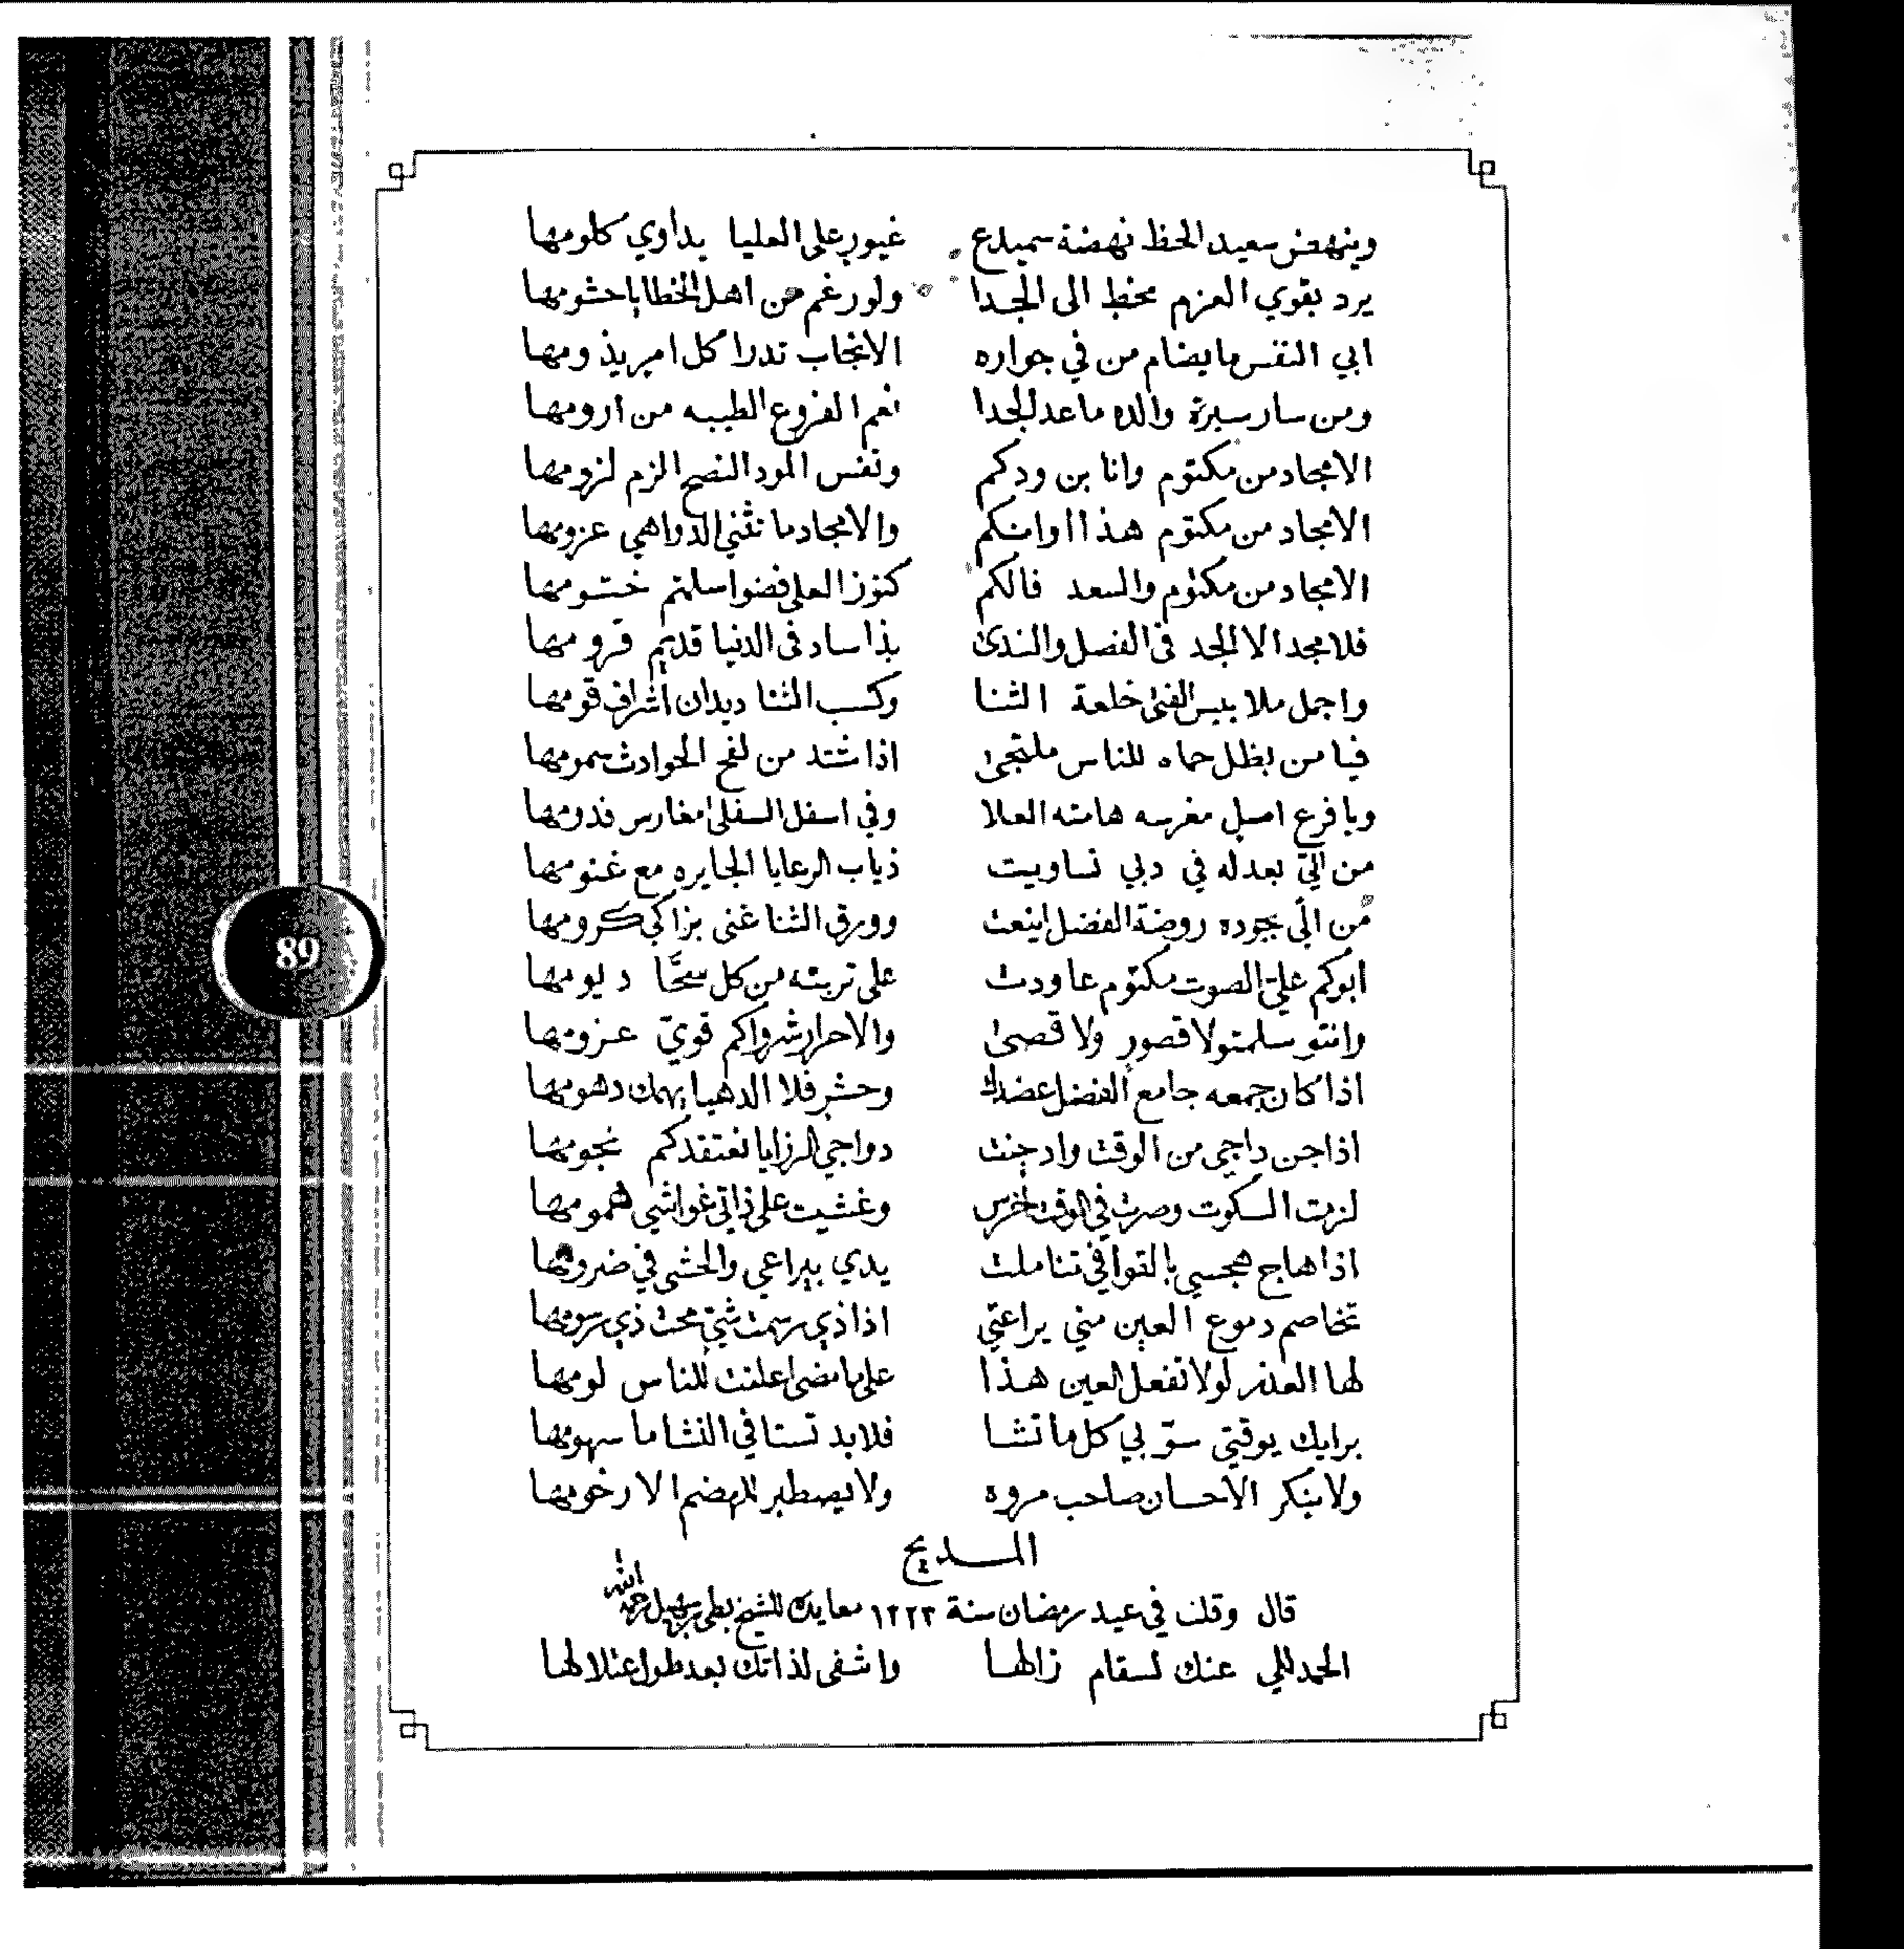 وينهض سعيد الحظ نهضة سميدع غيور على العليا يداوي كلومها
يرد بقوي العزم مخط الى الجدا ولو رغم من اهل الخطايا حشومها
ابي النفس ما يضام من في جواره الانجاب تدرا كل امر يذومها
ومن سار سيرة والده ما عد الجدا نعم الفروع الطيبه من ارومها
الامجاد من مكتوم وانا بن ودكم ونفس المود النصح الزم لزومها
الامجاد من مكتوم هذا اوانكم والامجاد ما تثني الدواهي عزومها
الامجاد من مكتوم والسعد فالكم كنوز العلى فضوا سلمتم ختومها
فلا مجد الا المجد في الفضل والندى بذا ساد في الدنيا قديم قرومها
واجمل ملابيس الفتى خلعة الثنا وكسب الثنا ديدان اشراف قومها
فيا من بظل حماه للناس ملتجى اذا شتد من لفح الحوادث سمومها
ويا فرع اصل مغرسه هامته العلا وفي اسفل السفلى مغارس فدومها
من الي بعدله في دبي تساويت ذياب الرعايا الجايره مع غنومها
من الي بجوده روضة الفضل اينعت وورق الثنا غنى بزاكي كرومها
ابوكم علي الصوت مكتوم عاودت على تربته من كل سحا ديومها
وانتو سلمتو لا قصور ولا قصى والاحرار شرواكم قوي عزومها
اذا كان جمعه جامع الفضل عضدك وحشر فلا الدهيا يهمك دهومها
اذا جن داجي من الوقت وادجنت دواجي الرزايا نعتقدكم نجومها
لزمت السكوت وصرت في الوقت اخرس وغشيت على ذاتي غواشي همومها
اذا هاج هجسي بالقوافي تناملت يدي بيراعي والحشى في ضرومها
تخاصم دموع العين مني يراعتي اذا ذي رسمت شي محت ذي رسومها
لها العذر لولا تفعل العين هذا على ما مضى اعلنت للناس لومها
برايك يوقتي سو بي كل ما تشا فلابد تستافي النشا ما سهومها
ولا ينكر الاحسان صاحب مروه ولا يصطبر للهضم الا رخومها
المديح
قال وقلت في عيد رمضان سنة ١٣٢٣ معايدة للشيخ بطي بن سهيل رحمه الله
الحمد للي عنك لسقام زالها واشفى لذاتك بعد طول اعتلالها
89